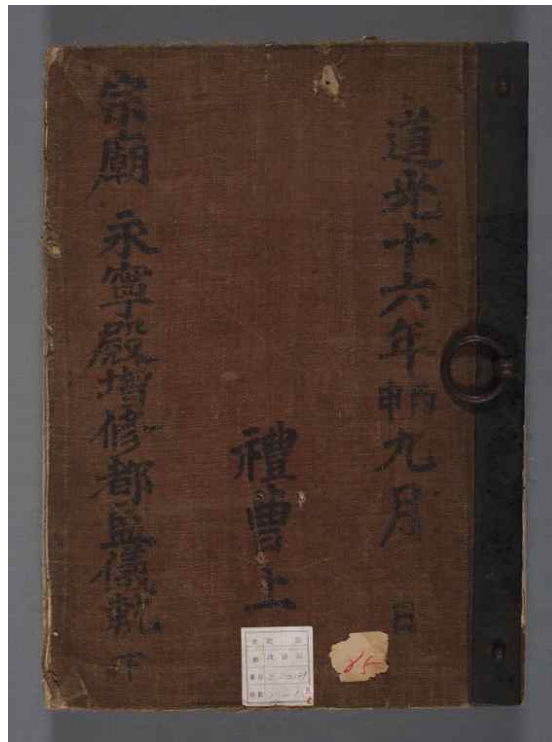 道光十六年丙申九月 日
禮曹上
宗廟 永寧殿增修都監儀軌 下
85